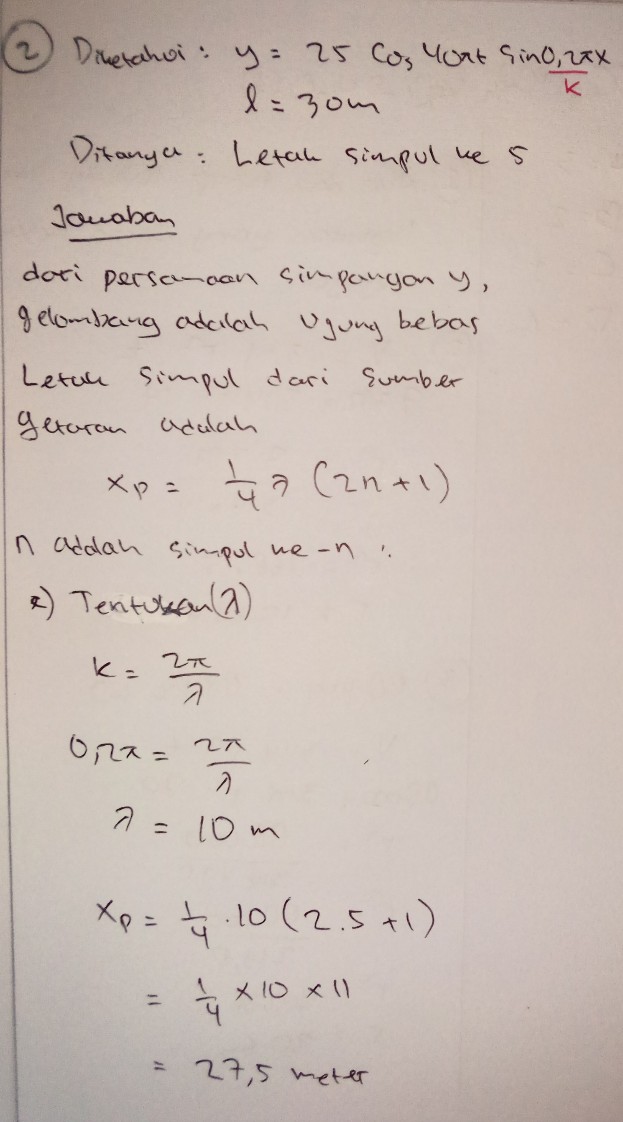 2 Diketahui : y = 25 Cos 40πt Sin 0,2πx
k
l = 30m
Ditanya : Letak simpul ke 5
Jawaban
dari persamaan simpangan y,
gelombang adalah Ujung bebas
Letak simpul dari sumber
getaran adalah
xp = 1/4 λ (2n+1)
n adalah simpul ke-n :
*) Tentukan (λ)
k = 2π/λ
0,2π = 2π/λ
λ = 10 m
xp = 1/4 . 10 (2.5 +1)
= 1/4 x 10 x 11
= 27,5 meter